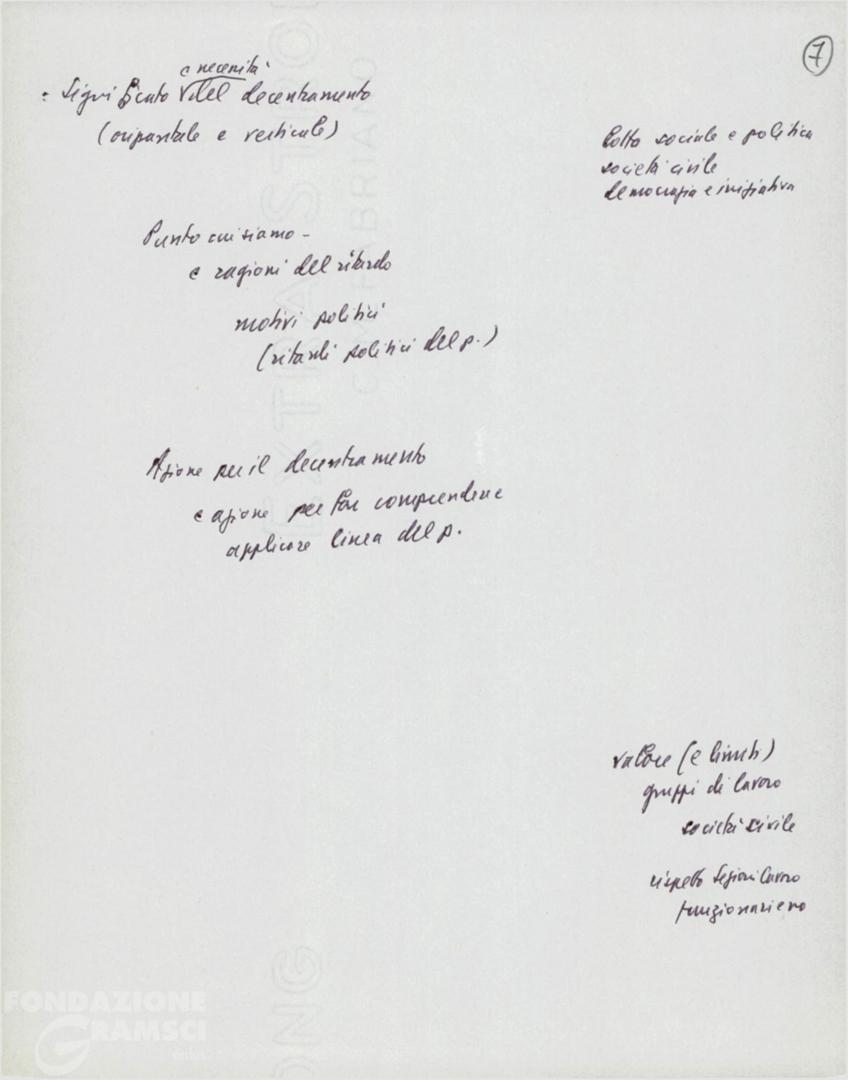 7
e necessità
: Significato V del decentramento
(orizzontale e verticale)
Lotta sociale e politica
società civile
democrazia e iniziativa
Punto cui siamo -
e ragioni del ritardo
motivi politici
(ritardi politici del p.)
Azione per il decentramento
e azione per far comprendere
applicare linea del p.
valore (e limiti)
gruppi di lavoro
società civile
rispetto sezioni lavoro
funzionari e no
FONDAZIONE
GRAMSCI
onlus
EXTRA STRONG
FABRIANO